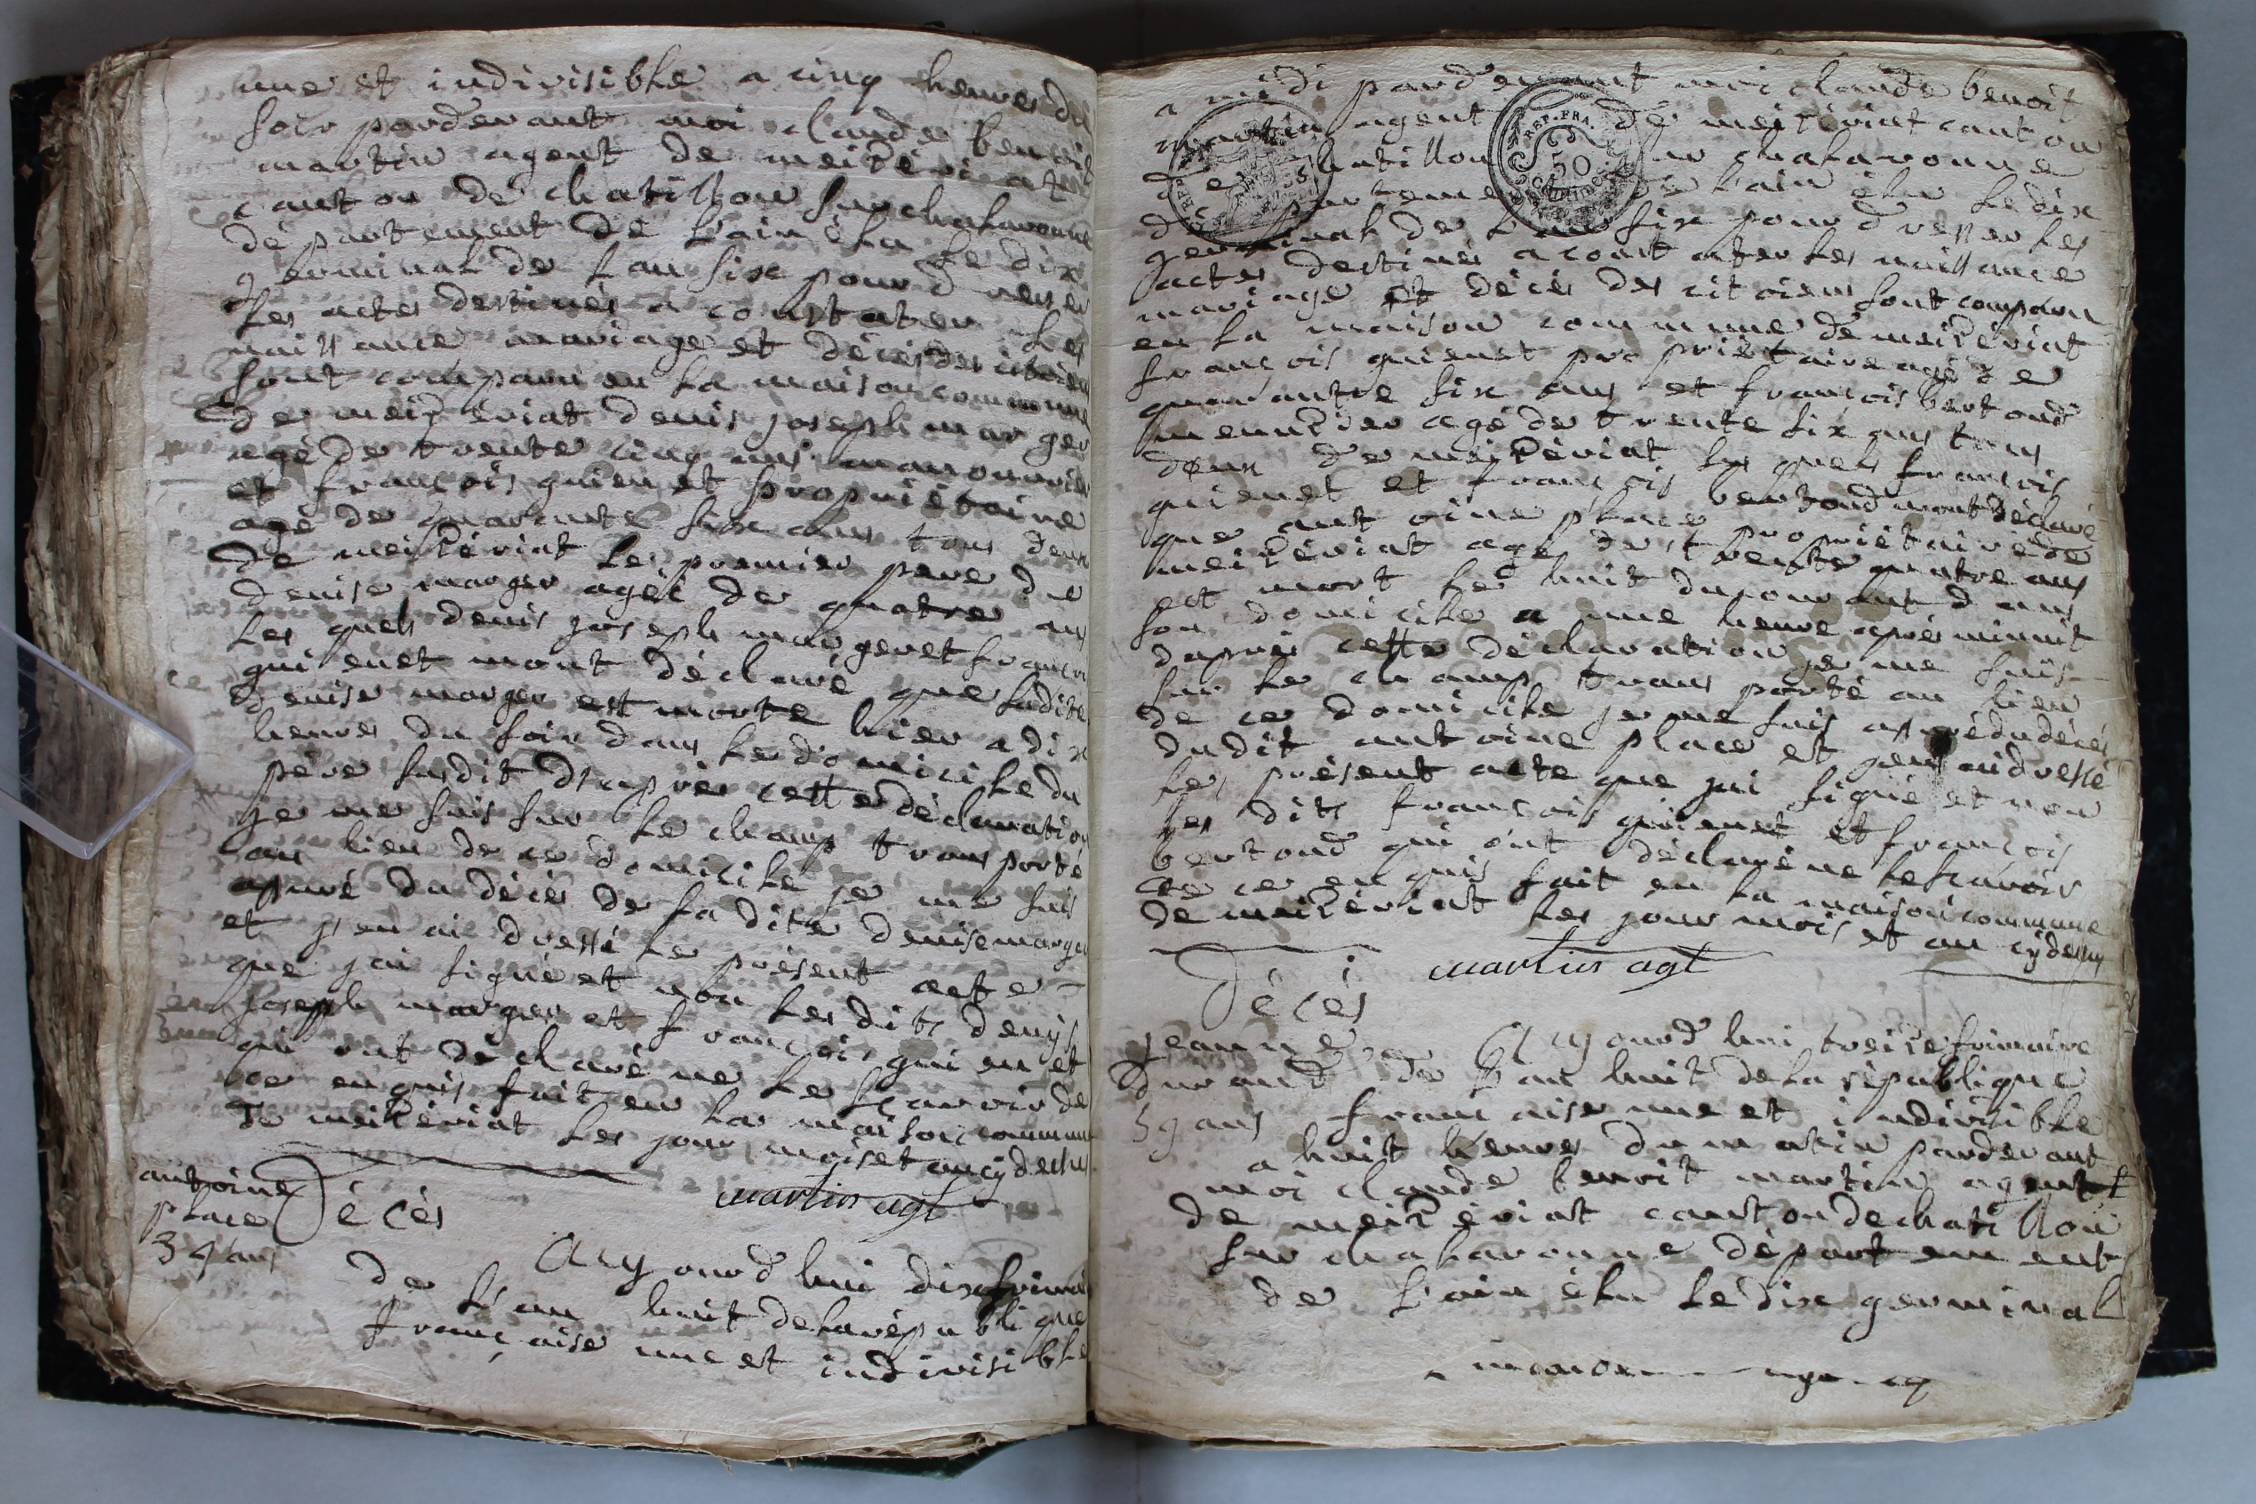 une et indivisible a cinq heures du
soir pardevant moi claude benoit
martin agent de meizériat
canton de chatillon sur chalaronne
département de l'ain élu le dix
germinal de l'an six pour dresser
les actes destinés a constater les
naissance mariage et décès des citoiens
sont comparu en la maison commune
de meizériat denis joseph marger
agé de trente cinq ans manouvrier
et françois guienet propriétaire
agé de quarante six ans tous deux
de meizériat le premier pere de
denise marger agée de quatre ans
les quels denis joseph marger et françois
guienet mont déclaré que ladite
denise marger est morte hier a dix
heures du soir dans le domicile du
père susdit d'après cette déclaration
je me suis sur le champ transporté
au lieu de ce domicile je me suis
assuré du décès de la dite denise marger
et j'en ai dressé le présent acte
que jai signé et non les dits denis
joseph marger et françois guienet
qui ont déclaré ne le sçavoir de
ce enquis fait en la maison commune
de meizériat les jour mois et an cydessus
martin agt
antoine
place
34 ans
Décès
Aujourd'hui dix frimaire
de l'an huit de la république
française une et indivisible
a midi pardevant moi claude benoit
martin agent de meizériat canton
de chatillon sur chalaronne
département de l'ain élu le dix
germinal de l'an six pour dresser les
actes destinés a constater les naissance
mariage et décès des citoiens sont comparu
en la maison commune de meizériat
françois guienet propriétaire agé de
quarante six ans et françois bertoud
meunier agé de trente six ans tous
deux de meizériat les quels françois
guienet et françois bertoud mont déclaré
que antoine place propriétaire de
meizériat agé de trente quatre ans
est mort le huit du courant dans
son domicile a une heure après minuit
d'après cette déclaration je me suis
sur le champ transporté au lieu
de ce domicile je me suis assuré du décès
dudit antoine place et jen ai dressé
le présent acte que jai signé et non
les dits françois guienet et françois
bertoud qui ont déclaré ne le sçavoir
de ce enquis fait en la maison commune
de meizériat les jour mois et an cydessus
martin agt
Décès
jeanne
durand
59 ans
Aujourd'hui treize frimaire
de l'an huit de la république
française une et indivisible
a huit heures du matin pardevant
moi claude benoit martin agent
de meizériat canton de chatillon
sur chalaronne département
de l'ain élu le dix germinal
REP. FRA.
50